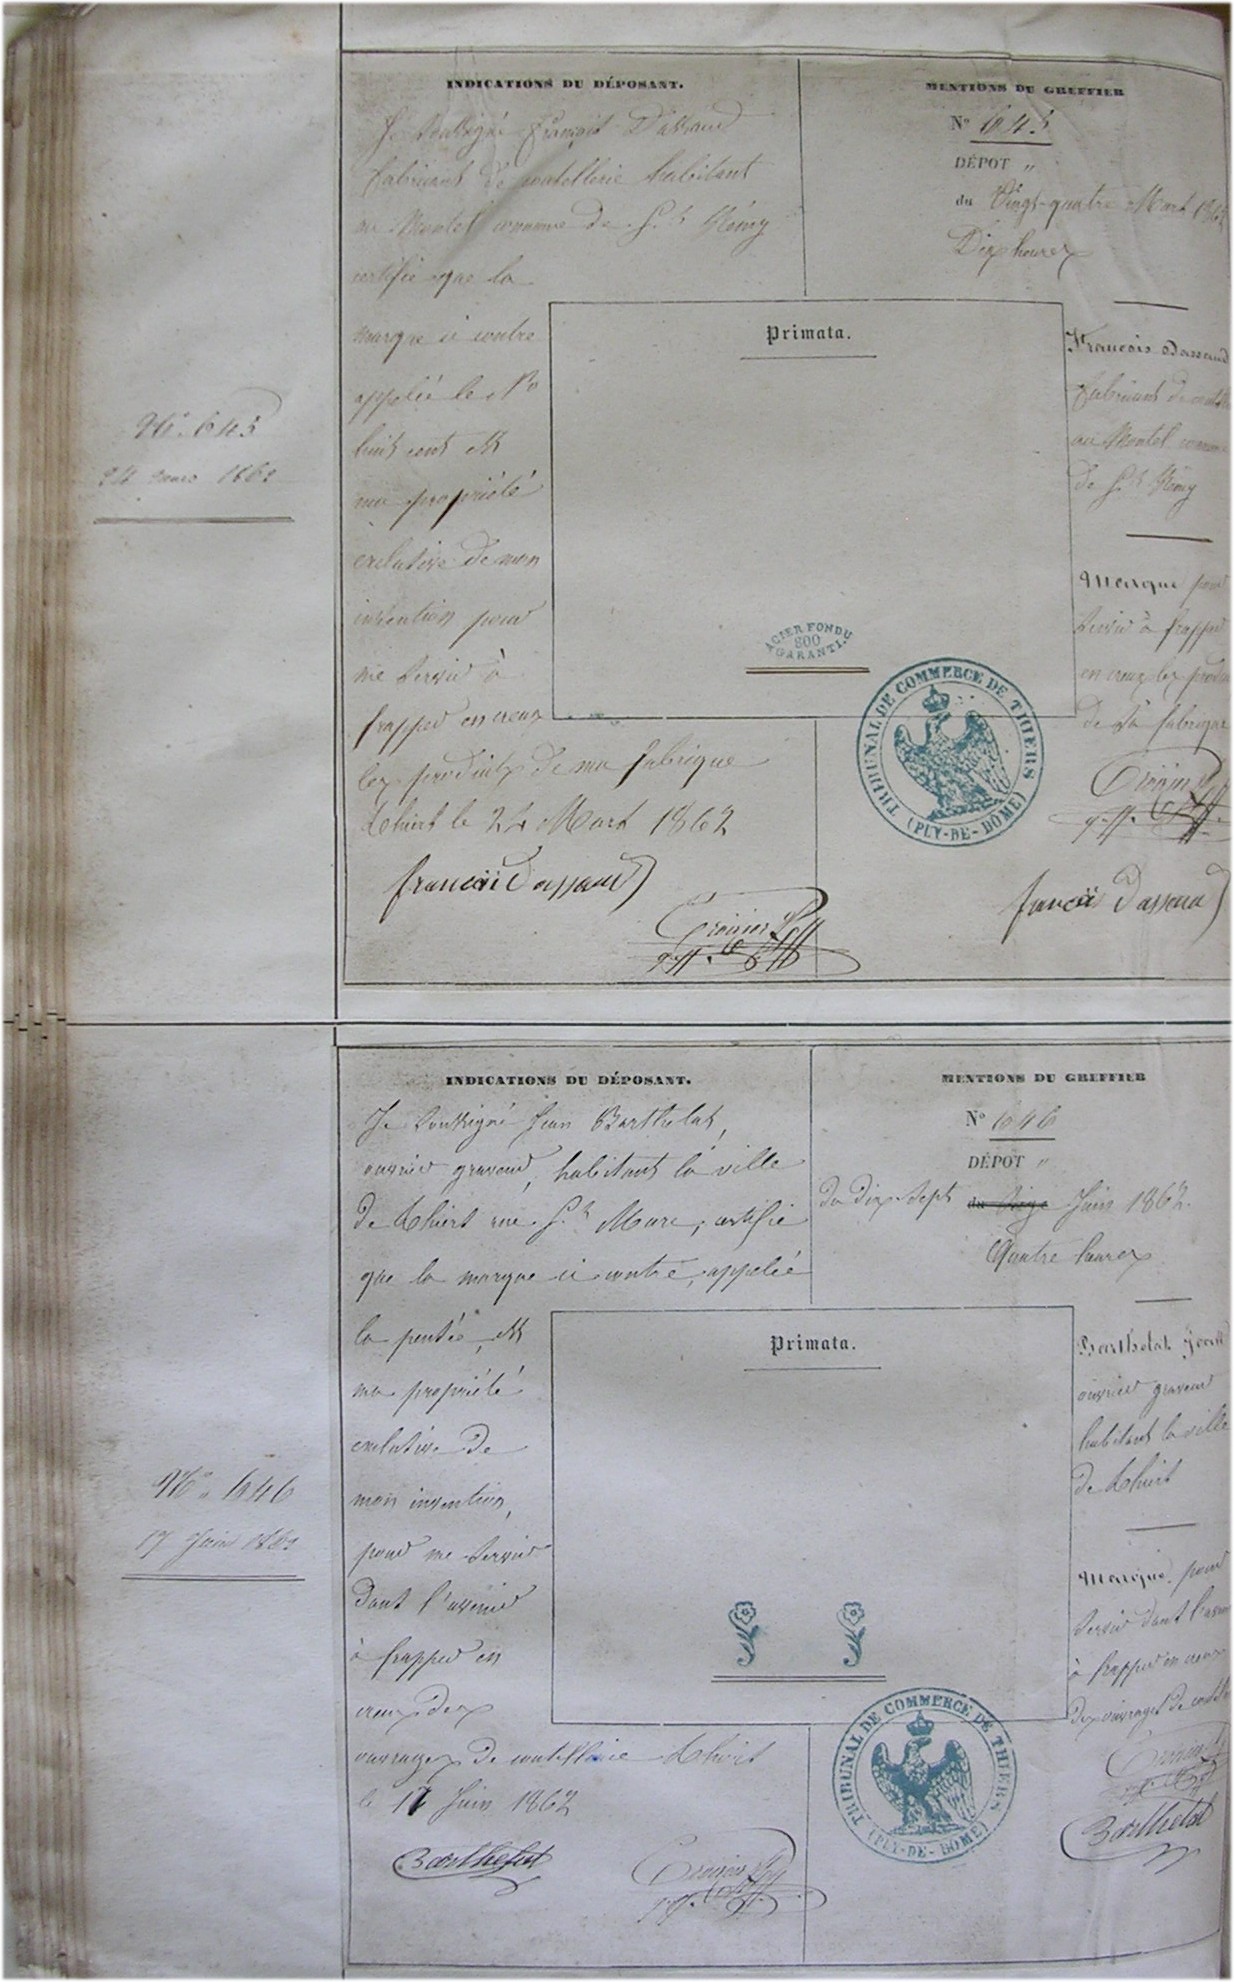 N° 645
24 mars 1862
INDICATIONS DU DÉPOSANT.
Je soussigné François Dassaud
fabricant de coutellerie habitant
au Montel commune de St Rémy
certifie que la
marque ci contre
appelée le No
huit cent est
ma propriété
exclusive de mon
invention pour
me servir à
frapper en creux
les produits de ma fabrique
Thiers le 24 Mars 1862
francoii Dassaud
MENTIONS DU GREFFIER
N° 645
DÉPOT "
du Vingt-quatre Mars 1862
Dix heures
Primata.
ACIER FONDU
800
GARANTI
TRIBUNAL DE COMMERCE DE THIERS
(PUY-DE-DÔME)
François Dassaud
fabricant de
au Montel
de St Rémy
Marque pour
servir à frapper
en creux les
de sa fabrique
Dassaud
N° 646
17 Juin 1862
INDICATIONS DU DÉPOSANT.
Je soussigné Jean Barthelat,
ouvrier graveur, habitant la ville
de Thiers rue St Marc, certifie
que la marque ci contre, appelée
la pensée, est
ma propriété
exclusive de
mon invention,
pour me servir
dans l'avenir
à frapper en
creux des
ouvrages de coutellerie Thiers
le 17 Juin 1862
Barthelat
MENTIONS DU GREFFIER
N° 646
DÉPOT "
du dix-sept du Juin 1862
Quatre heures
Primata.
TRIBUNAL DE COMMERCE DE THIERS
(PUY-DE-DÔME)
Barthelat Jean
ouvrier graveur
habitant la ville
de Thiers
Marque pour
servir dans
à frapper en creux
des ouvrages de
Barthelat